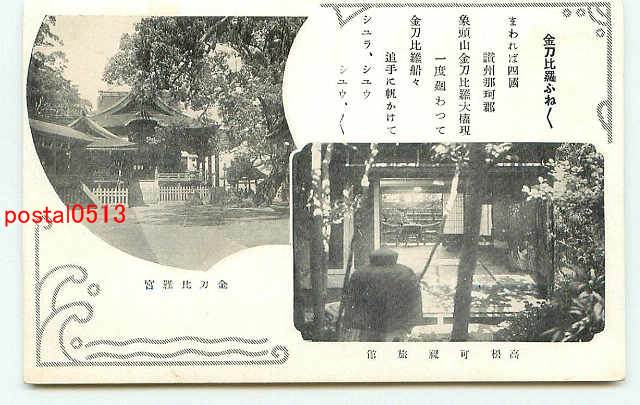 金刀比羅ふね〱
まわれば四國
讃州那珂郡
象頭山金刀比羅大權現
一度廻わつて
金刀比羅船々
追手に帆かけて
シユラ、シユウ
シユウ、〱
金刀比羅宮
高松可祝旅館
postal0513